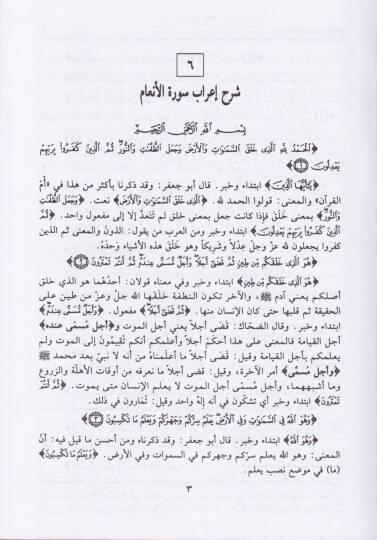 ٦
شرح إعراب سورة الأنعام
بسم الله الرحمن الرحيم
﴿الْحَمْدُ لِلَّهِ الَّذِي خَلَقَ السَّمَوَاتِ وَالْأَرْضَ وَجَعَلَ الظُّلُمَاتِ وَالنُّورَ ثُمَّ الَّذِينَ كَفَرُوا بِرَبِّهِمْ
يَعْدِلُونَ ١﴾
ابتداء وخبر. قال أبو جعفر: وقد ذكرنا بأكثر من هذا في «أمّ
القرآن» والمعنى: قولوا الحمد لله. ﴿الَّذِي خَلَقَ السَّمَوَاتِ وَالْأَرْضَ﴾ نعت. ﴿وَجَعَلَ الظُّلُمَاتِ
وَالنُّورَ﴾ بمعنى خَلَقَ فإذا كانت جعل بمعنى خلق لم تتعدّ إلا إلى مفعول واحد. ﴿ثُمَّ
الَّذِينَ كَفَرُوا بِرَبِّهِمْ يَعْدِلُونَ﴾ ابتداء وخبر ومن العرب من يقول: الذون والمعنى ثم الذين
كفروا يجعلون لله عزّ وجلّ عِدلاً وشريكاً وهو خلق هذه الأشياء وَحدَهُ.
﴿هُوَ الَّذِي خَلَقَكُم مِّن طِينٍ ثُمَّ قَضَى أَجَلاً وَأَجَلٌ مُّسَمًّى عِندَهُ ثُمَّ أَنتُمْ تَمْتَرُونَ ٢﴾
﴿هُوَ الَّذِي خَلَقَكُم مِّن طِينٍ﴾ ابتداء وخبر وفي معناه قولان: أحدُهُما هو الذي خلق
أصلكم يعني آدم ﷺ، والآخر تكون النطفة خلقها الله جلّ وعزّ من طين على
الحقيقة ثم قلبها حتى كان الإنسان منها. ﴿ثُمَّ قَضَى أَجَلاً﴾ مفعول. ﴿وَأَجَلٌ مُّسَمًّى عِندَهُ﴾
ابتداء وخبر. وقال الضحّاك: قَضَى أجلاً يعني أجل الموت و﴿أجل مسمى عنده﴾
أجل القيامة فالمعنى على هذا أحكمَ أجلاً وأعلمكم أنكم تُقيمُونَ إلى الموت ولم
يعلمكم بأجل القيامة وقيل: قضى أجلاً ما أعلمناه من أنه لا نبيّ بعد محمد ﷺ
﴿وأجل مُسمّى﴾ أمر الآخرة، وقيل: قضى أجلاً ما نعرفه من أوقات الأهلّة والزروع
وما أشبههما، وأجل مُسمّى أجل الموت لا يعلم الإنسان متى يموت. ﴿ثُمَّ أَنتُمْ
تَمْتَرُونَ﴾ ابتداء وخبر أي تشكّون في أنه إله واحد وقيل: تُمارون في ذلك.
﴿وَهُوَ اللَّهُ فِي السَّمَوَاتِ وَفِي الْأَرْضِ يَعْلَمُ سِرَّكُمْ وَجَهْرَكُمْ وَيَعْلَمُ مَا تَكْسِبُونَ ٣﴾
﴿وَهُوَ اللَّهُ﴾ ابتداء وخبر. قال أبو جعفر: وقد ذكرناه ومن أحسن ما قيل فيه: أنّ
المعنى: وهو الله يعلم سرّكم وجهركم في السموات وفي الأرض. ﴿وَيَعْلَمُ مَا تَكْسِبُونَ﴾
(ما) في موضع نصب بيعلم.
٣